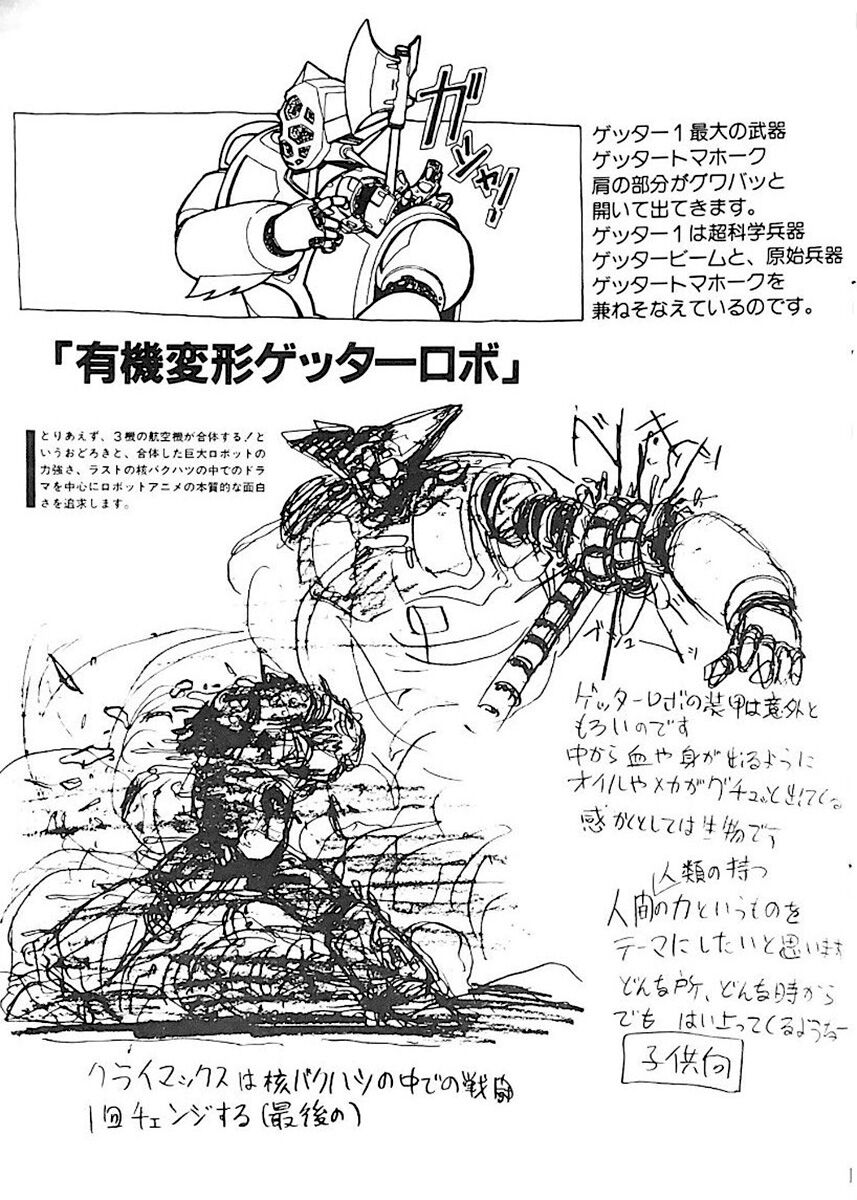 ガシャン
ゲッター1最大の武器
ゲッタートマホーク
肩の部分がグワバッと
開いて出てきます。
ゲッター1は超科学兵器
ゲッタービームと、原始兵器
ゲッタートマホークを
兼ねそなえているのです。
「有機変形ゲッターロボ」
とりあえず、3機の航空機が合体する!と
いうおどろきと、合体した巨大ロボットの
力強さ、ラストの核バクハツの中でのドラ
マを中心にロボットアニメの本質的な面白
さを追求します。
べきっ
ブシューッ
ゲッターロボの装甲は意外と
もろいのです
中から血や身が出るように
オイルやメカがグチュっと出てくる
感かくとしては生物です
人類の持つ
人間の力というものを
テーマにしたいと思います
どんな所、どんな時から
でも はい上ってくるような
子供向
クライマックスは核バクハツの中での戦闘
1回チェンジする(最後の)